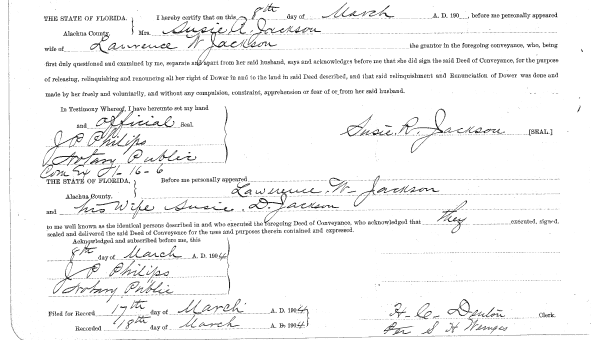 THE STATE OF FLORIDA, I hereby certify that on this 8th day of March A. D. 190 , before me personally appeared
Alachua County. Mrs. Susie R. Jackson
wife of Lawrence W. Jackson the grantor in the foregoing conveyance, who, being
first duly questioned and examined by me, separate and apart from her said husband, says and acknowledges before me that she did sign the said Deed of Conveyance, for the purpose
of releasing, relinquishing and renouncing all her right of Dower in and to the land in said Deed described, and that said relinquishment and Renunciation of Dower was done and
made by her freely and voluntarily, and without any compulsion, constraint, apprehension or fear of or from her said husband.
In Testimony Whereof, I have hereunto set my hand
and official Seal.
Susie. R. Jackson [SEAL.]
J P Philips
Notary Public
Com 1-16-6
THE STATE OF FLORIDA, Before me personally appeared
Alachua County. Lawrence. W. Jackson
and his Wife Susie. D. Jackson
to me well known as the identical persons described in and who executed the foregoing Deed of Conveyance, who acknowledged that they executed, signed,
sealed and delivered the said Deed of Conveyance for the uses and purposes therein contained and expressed.
Acknowledged and subscribed before me, this
8th day of March A. D. 1904
J P Philips
Notary Public
Filed for Record 17th day of March A. D. 1904
Recorded 18th day of March A. D. 1904
H. C. Denton Clerk.
Per S H Wienges